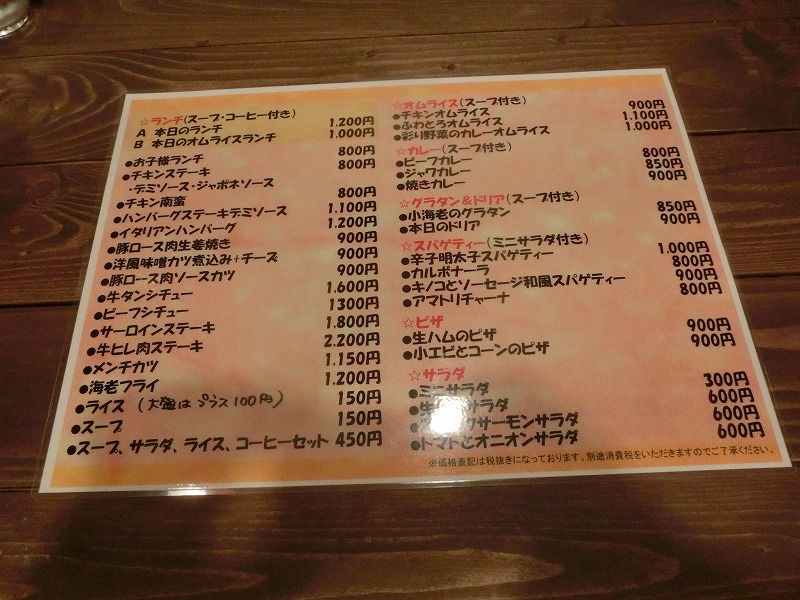 ☆ランチ(スープ・コーヒー付き)
A 本日のランチ 1.200円
B 本日のオムライスランチ 1.000円
●お子様ランチ 800円
●チキンステーキ 800円
・デミソース・ジャポネソース
●チキン南蛮 800円
●ハンバーグステーキデミソース 1.100円
●イタリアンハンバーグ 1.200円
●豚ロース肉生姜焼き 900円
●洋風味噌カツ煮込み+チーズ 900円
●豚ロース肉ソースカツ 900円
●牛タンシチュー 1.600円
●ビーフシチュー 1300円
●サーロインステーキ 1.800円
●牛ヒレ肉ステーキ 2.200円
●メンチカツ 1.150円
●海老フライ 1.200円
●ライス (大盛は プラス100円) 150円
●スープ 150円
●スープ、サラダ、ライス、コーヒーセット 450円
☆オムライス(スープ付き)
●チキンオムライス 900円
●ふわとろオムライス 1.100円
●彩り野菜のカレーオムライス 1.000円
☆カレー(スープ付き)
●ビーフカレー 800円
●ジャワカレー 850円
●焼きカレー 900円
☆グラタン&ドリア(スープ付き)
●小海老のグラタン 850円
●本日のドリア 900円
☆スパゲティー(ミニサラダ付き)
●辛子明太子スパゲティー 1.000円
●カルボナーラ 800円
●キノコとソーセージ和風スパゲティー 900円
●アマトリチャーナ 800円
☆ピザ
●生ハムのピザ 900円
●小エビとコーンのピザ 900円
☆サラダ
●ミニサラダ 300円
サラダ 600円
サーモンサラダ 600円
●トマトとオニオンサラダ 600円
※価格表記は税抜きになっております。別途消費税をいただきますのでご了承ください。